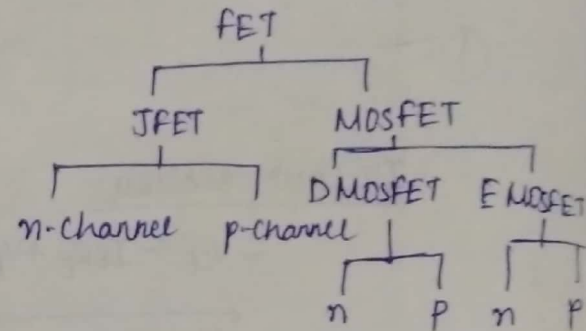 FET
JFET MOSFET
n-channel p-channel DMOSFET EMOSFET
n p n p